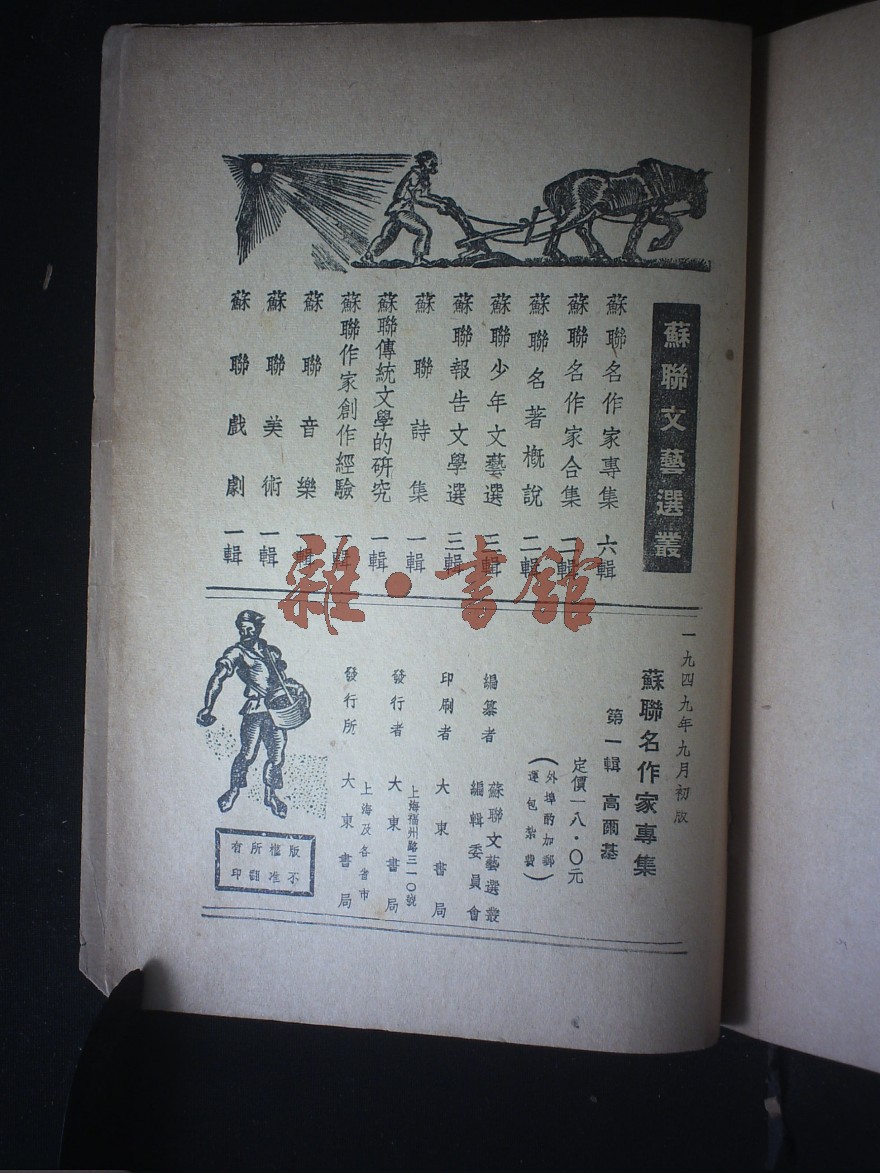 蘇聯文藝選叢
蘇聯名作家專集 六輯
蘇聯名作家合集 二輯
蘇聯名著概說 二輯
蘇聯少年文藝選 三輯
蘇聯報告文學選 三輯
蘇聯詩集 一輯
蘇聯傳統文學的研究 一輯
蘇聯作家創作經驗 一輯
蘇聯音樂 一輯
蘇聯美術 一輯
蘇聯戲劇 一輯
雜·書館
一九四九年九月初版
蘇聯名作家專集
第一輯 高爾基
定價一八·〇元
(外埠酌加郵
運包紮費)
編纂者 蘇聯文藝選叢
編輯委員會
印刷者 大東書局
上海福州路三一〇號
發行者 大東書局
上海及各省市
發行所 大東書局
版權所有
不准翻印